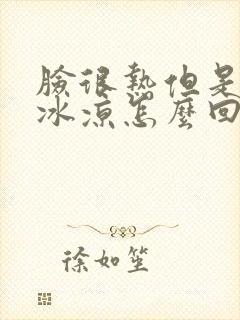 臉很熱但是
冰涼怎麼回
徐如笙